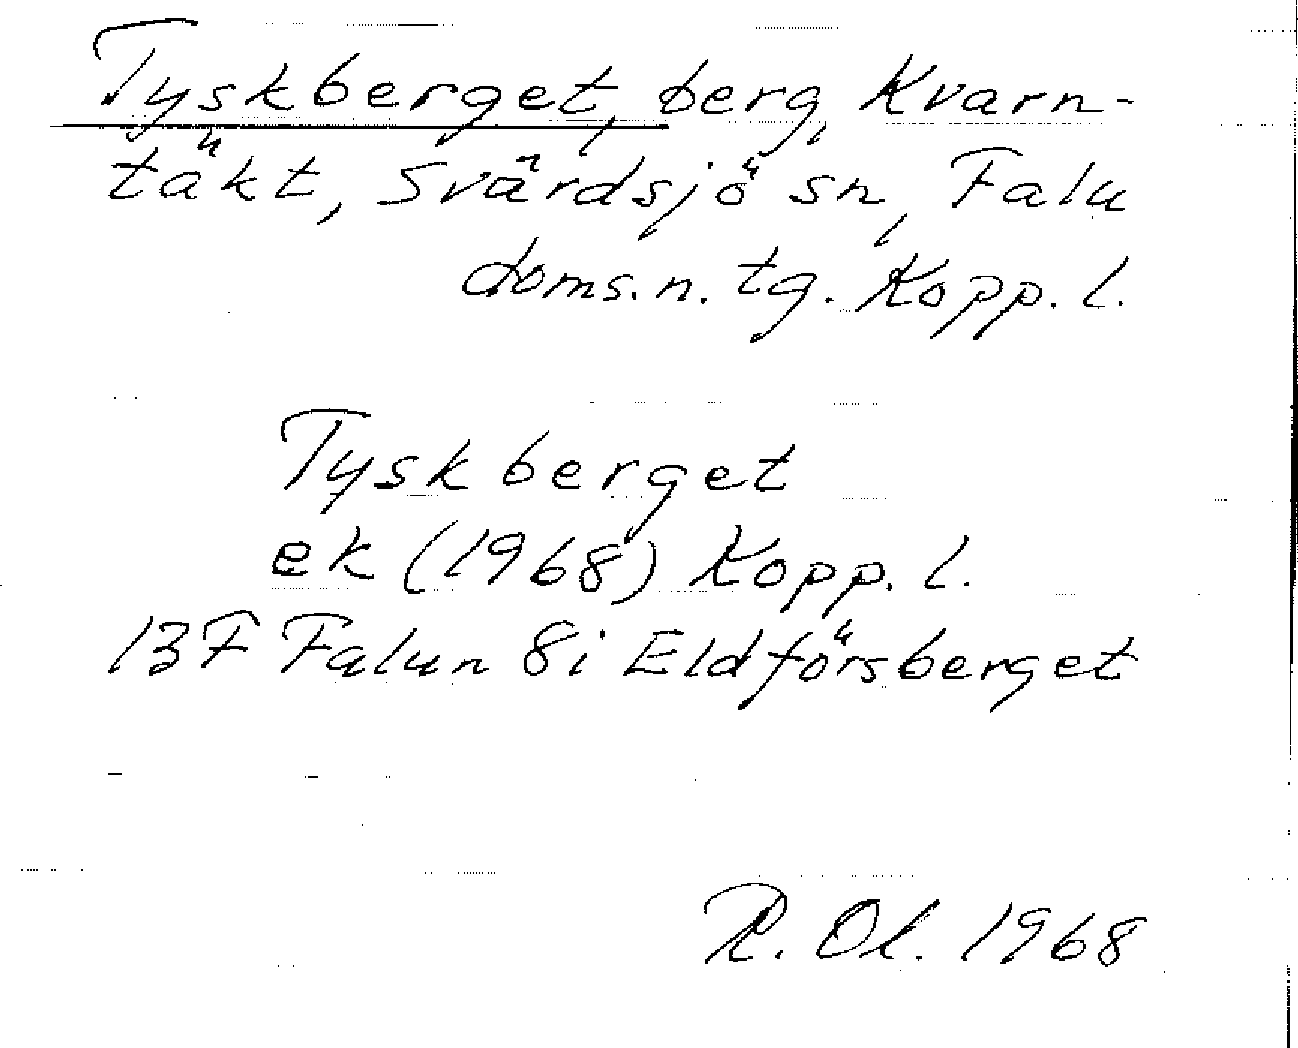 Tyskberget, berg, Kvarn-
täkt, Svärdsjö sn, Falu
doms.n. tg. Kopp. l.
Tyskberget
ek (1968) Kopp. l.
13F Falun 8i Eldförsberget
R. Ol. 1968